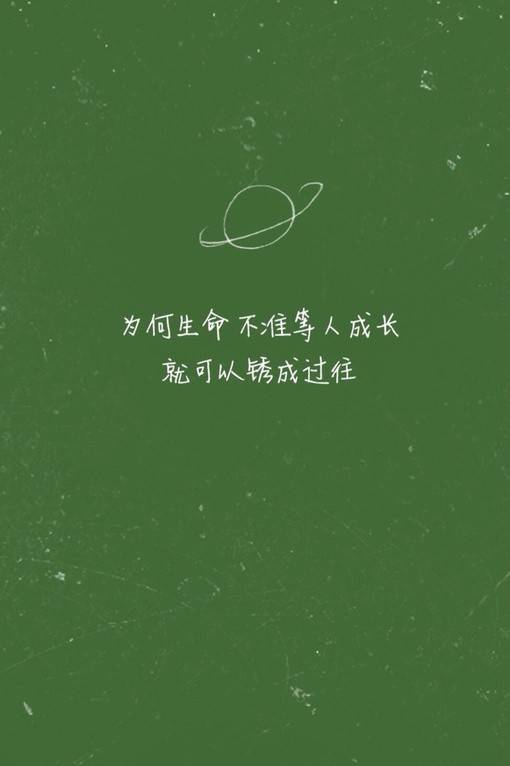 为何生命不准等人成长
就可以锈成过往